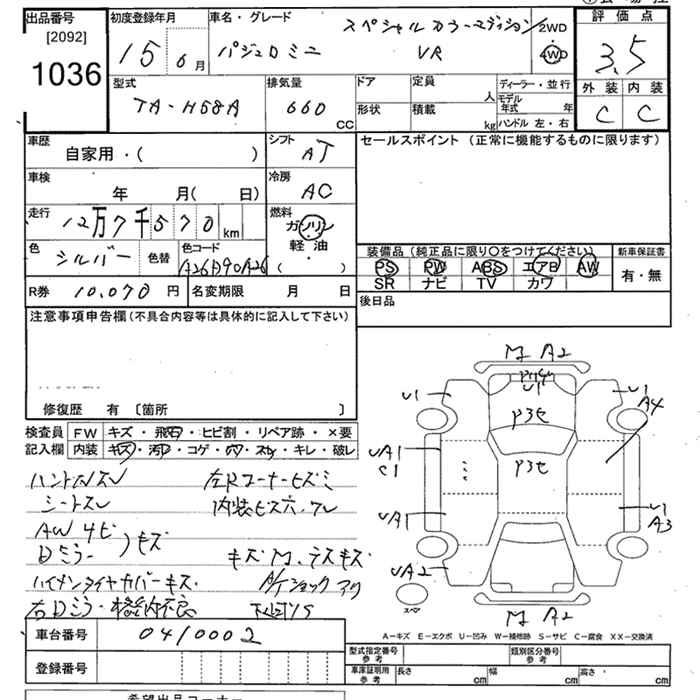 出品番号 [2092] 1036
初度登録年月 15 6月
車名・グレード スペシャルカラーエディション
パジェロミニ VR
2WD
4WD
評価点 3.5
外装 内装
C C
型式 TA-H58A
排気量 660 CC
ドア 形状
定員 人
積載 kg
ディーラー・並行
モデル年式 年
ハンドル 左・右
車歴 自家用・( )
シフト AT
セールスポイント (正常に機能するものに限ります)
車検 年 月( 日)
冷房 AC
走行 12万7千570km
燃料 ガソリン・軽油 ( )
色 シルバー 色替 色コード A26D90A26
装備品 (純正品に限り〇をつけてください) 新車保証書
PS PW ABS エアB AW 有・無
SR ナビ TV カワ
R券 10,070円 名変期限 月 日
後日品
注意事項申告欄(不具合内容等は具体的に記入して下さい)
修復歴 有 〔箇所 〕
検査員記入欄
FW キズ・飛石・ヒビ割・リペア跡・×要
内装 キズ・汚れ・コゲ・穴・スレ・キレ・破レ
ハンドルスレ 左Rコーナーヒズミ
シートスレ 内装ビス穴・ワレ
AW 4ヒ
Dミラー キズ
キズM、ラスキズ
ハイメンタイヤカバーキズ
右Dミラー・格納不良 下回りS
M A2
U1
U1
U1
A4
P3セ
P3セ
UA1
C1
UA1
U1
A3
UA2
スペア
M A2
A-キズ E-エクボ U-凹み W-補修跡 S-サビ C-腐食 XX-交換済
車台番号 0410002
登録番号
型式指定番号 参考
類別区分番号 参考
車庫証明用 参考 長さ cm 幅 cm 高さ cm
希望出品コーナー